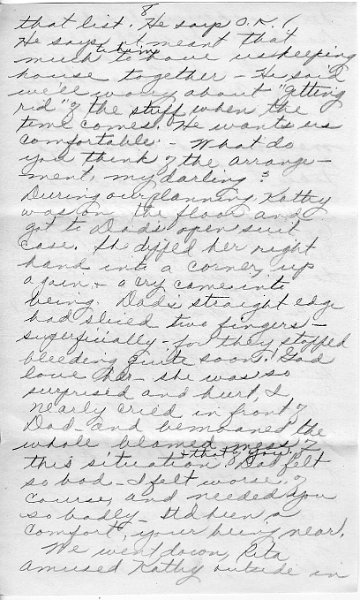 that list. He says O.K.!
He says it meant that
much to him to have us keeping
house together - He said
we'll worry about "getting
rid" of the stuff when the
time comes. He wants us
comfortable - What do
you think of the arrange-
ment, my darling?
During our planning Kathy
was on the floor and
got to Dad's open suit
case. She dipped her right
hand into a corner, up
again & a cry came into
being. Dad's straight edge
had sliced two fingers -
superficially - for they stopped
bleeding quite soon! Dad
love her - she was so
surprised and hurt, I
nearly cried in front of
Dad - and bemoaned the
whole blamed mess of
this situation, Dad felt
so bad - I felt worse, of
course, and needed you
so badly - It'd been a
comfort, your being near.
We went down, Rita
amused Kathy outside in